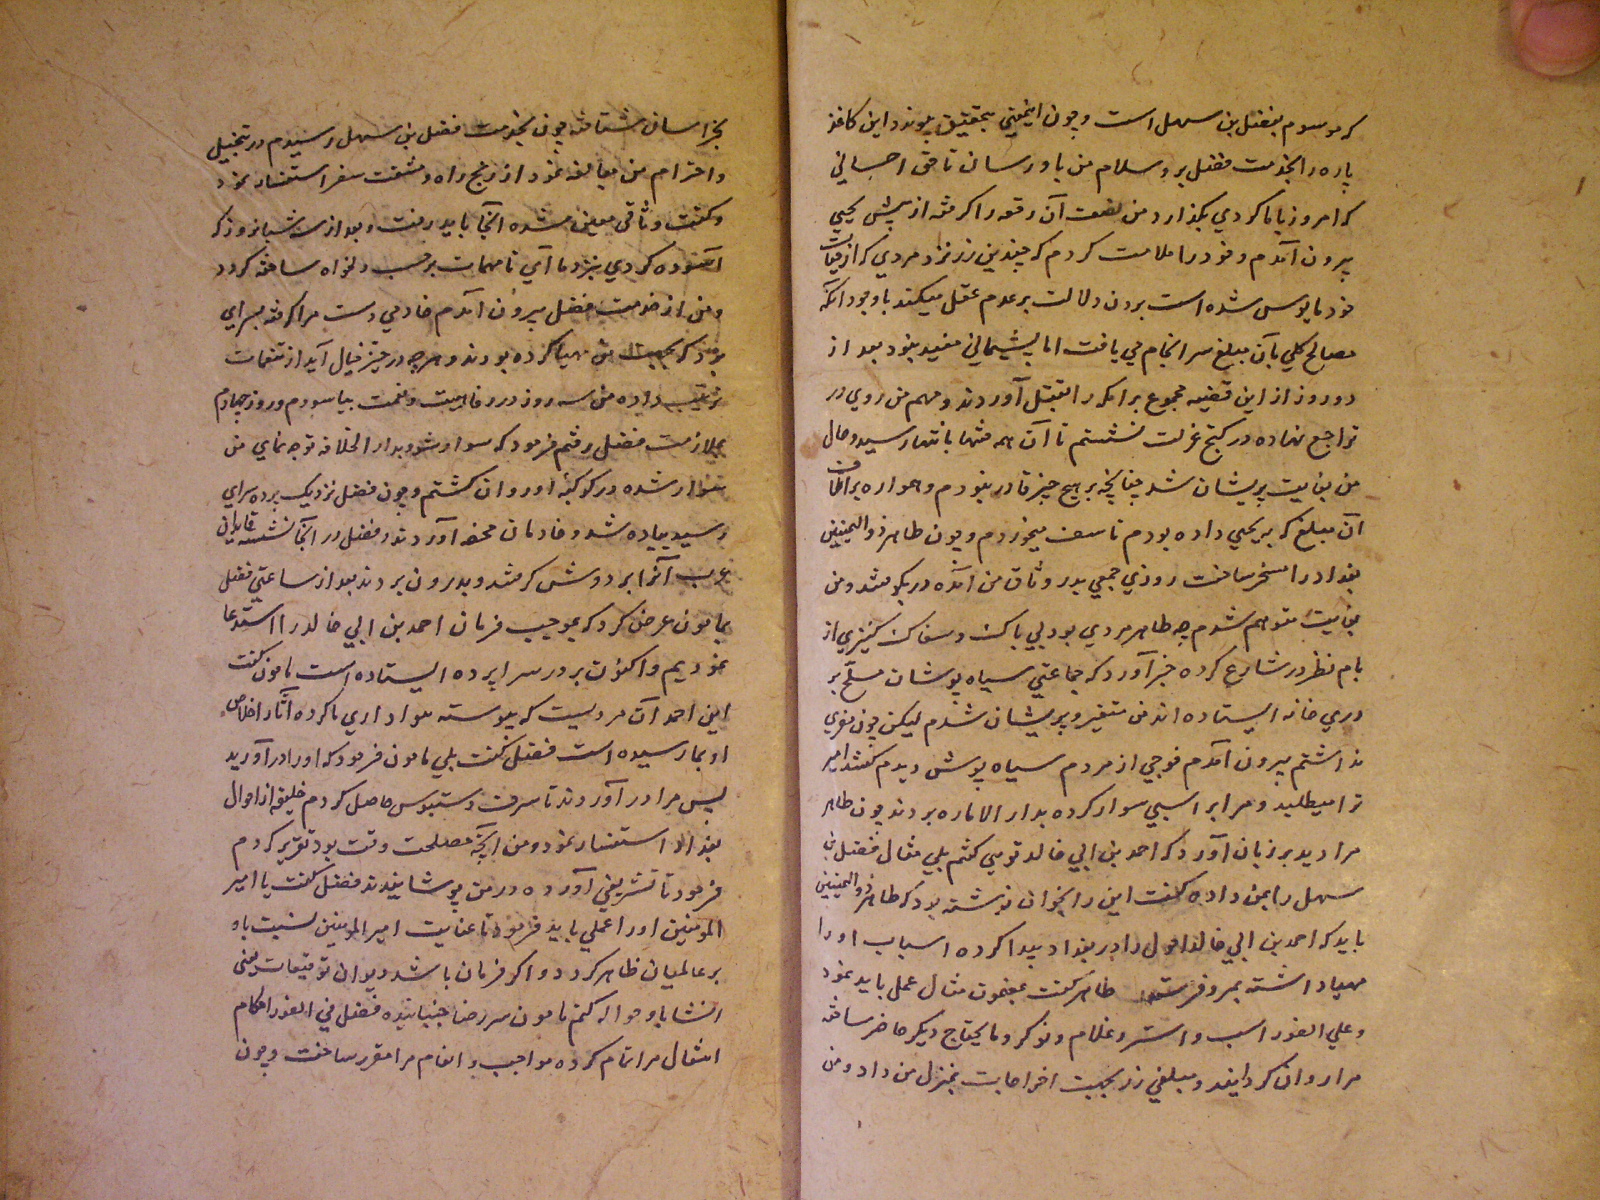 که موسوم بفضل بن سهل است و چون اینمعنی بتحقیق پیوندد این کاغذ
پاره را بخدمت فضل بر و سلام من باو رسان تا حق احسانی
که امروز با ما کردی بگذارد من بضعت آن رقعه را گرفته از پیش یحیی
بیرون آمدم و خود را ملامت کردم که چندین زر نزد مردی که از حیات
خود مایوس شده است بردن دلالت بر عدم عقل میکند با وجود آنکه
مصالح کلی بآن مبلغ سرانجام می یافت اما پشیمانی مفید نبود بعد از
دو روز از این قضیه مجموع برامکه را بقتل آوردند و مهم من روی در
تراجع نهاده در کنج عزلت نشستم تا آن همه متها بانتها رسید و حال
من بغایت پریشان شد چنانچه بر هیچ چیز قادر نبودم و همواره بر اتلاف
آن مبلغ که بر یحیی داده بودم تاسف میخوردم و چون طاهر ذو الیمینین
بغداد را مسخر ساخت روزی جمعی بدر وثاق من آمده در بکوفتند و من
بغایت متوهم شدم چه طاهر مردی بود بی باک و سفاک کنیزی از
بام نظر در شارع کرده خبر آورد که جماعتی سیاه پوشان مسلح بر
در خانه ایستاده اند من متغیر و پریشان شدم لیکن چون مفری
نداشتم بیرون آمدم فوجی از مردم سیاه پوش دیدم گفتند امیر
ترا میطلبد و مرا بر اسبی سوار کرده بدار الاماره بردند چون طاهر
مرا دید بر زبان آورد که احمد بن ابی خالد تویی گفتم بلی مثال فضل بن
سهل را بمن داده گفت این را بخوان نوشته بود که طاهر ذو الیمینین
باید که احمد بن ابی خالد احول را در بغداد پیدا کرده اسباب او را
مهیا داشته بمرو فرستد طاهر گفت بمضمون مثال عمل باید نمود
و علی الفور اسب و استر و غلام و نوکر و ما یحتاج دیگر حاضر ساخته
مرا روان گردانید و مبلغی زر بجهت اخراجات بمنزل من داد و من
بخراسان شتافته چون بخدمت فضل بن سهل رسیدم در تبجیل
و احترام من مبالغه نمود از رنج راه و مشقت سفر استفسار نمود
و گفت وثاقی معین شده آنجا باید رفت و بعد از سه شبانروز که
آسوده گردی بنزد ما آی تا مهمات بر حسب دلخواه ساخته گردد
و من از خدمت فضل بیرون آمدم خادمی دست مرا گرفته بسرای
بود که بجهت من مهیا کرده بودند و هر چه در حیز خیال آید از تنعمات
ترتیب داده من سه روز در رفاهیت و نعمت بیاسودم و روز چهارم
بملازمت فضل رفتم فرمود که سوار شو و بدار الخلافه توجه نمای من
سوار شده در کوکبه او روان گشتم و چون فضل نزدیک پرده سرای
رسید پیاده شد و خادمان محفه آوردند و فضل در آنجا نشسته
عرب آنرا بر دوش گرفتند و بدرون بردند بعد از ساعتی فضل
بمامون عرض کرد که بموجب فرمان احمد بن ابی خالد را استدعا
نمودیم و اکنون بر در سراپرده ایستاده است مامون گفت
این احمد آن مردیست که پیوسته هواداری ما کرده آثار اخلاص
او بما رسیده است فضل گفت بلی مامون فرمود که او را در آورید
پس مرا در آوردند تا شرف دستبوس حاصل کردم خلیفه از احوال
بغداد استفسار نمود و من آنچه مصلحت وقت بود تقریر کردم
فرمود تا تشریفی آورده در من پوشانیدند فضل گفت یا امیر
المومنین او را عملی باید فرمود تا عنایت امیر المومنین نسبت باو
بر عالمیان ظاهر گردد و اگر فرمان باشد دیوان توقیعات
انشا باو حواله کنم مامون سر رضا جنبانیده فضل فی الفور احکام
امثال مرا تمام کرده مواجب و انعام مرا مقرر ساخت و چون